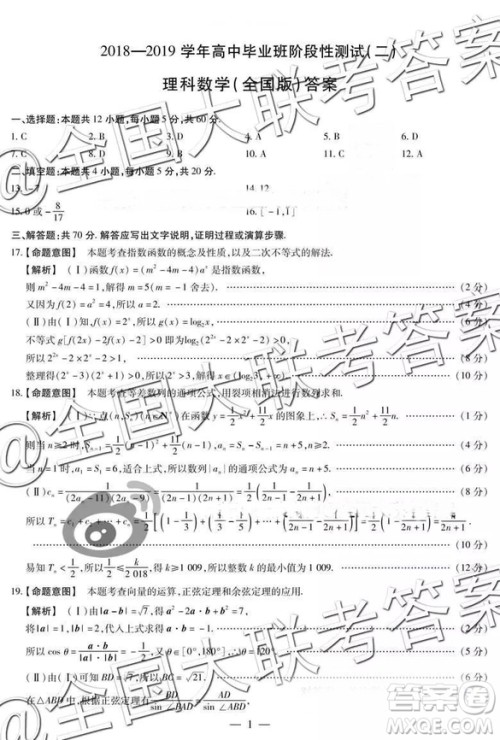 2018—2019 学年高中毕业班阶段性测试(二)
理科数学(全国版)答案
一、选择题:本题共 12 小题,每小题 5 分,共 60 分.
1. C 2. D 3. A 4. B 5. B 6. D
7. C 8. 9. D 10. A 11. C 12. A
二、填空题:本题共 4 小题,每小题 5 分,共 20 分.
13. -7 14. 12
15. 0 或 -8/17 16. [-1,1]
三、解答题:共 70 分. 解答应写出文字说明,证明过程或演算步骤.
17.【命题意图】 本题考查指数函数的概念及性质,以及二次不等式的解法.
【解析】 (Ⅰ)函数 f(x) = (m² - 4m - 4)aˣ 是指数函数,
则 m² - 4m - 4 = 1,解得 m = 5(m = -1 舍去). (2 分)
又因为 f(2) = a² = 4,所以 a = 2. (4 分)
(Ⅱ)由(Ⅰ)知,f(x) = 2ˣ,所以 g(x) = log₂x, (6 分)
不等式 g[f(2x) - 2f(x) - 2] > 0 即为 log₂(2²ˣ - 2·2ˣ - 2) > 0,
所以 2²ˣ - 2·2ˣ - 2 > 1. (8 分)
整理得(2ˣ - 3)(2ˣ + 1) > 0,即 2ˣ > 3,所以 x ∈ (log₂3, +∞). (10 分)
18.【命题意图】 本题考查等差数列的通项公式,用裂项相消法进行数列求和.
【解析】 (Ⅰ)∵点(n,Sₙ)(n∈N*)在函数 y = 1/2 x² + 11/2 x 的图象上,∴Sₙ = 1/2 n² + 11/2 n. (1 分)
则当 n≥2 时,Sₙ₋₁ = 1/2 (n-1)² + 11/2 (n-1),所以 aₙ = Sₙ - Sₙ₋₁ = n + 5(n≥2). (4 分)
当 n = 1 时,a₁ = S₁ = 6,适合上式,所以数列{aₙ}的通项公式为 aₙ = n + 5. (6 分)
(Ⅱ)cₙ = 1/((2aₙ - 11)(2aₙ - 9)) = 1/((2n-1)(2n+1)) = 1/2 (1/(2n-1) - 1/(2n+1)), (8 分)
所以 Tₙ = c₁ + c₂ + … + cₙ = 1/2 [(1 - 1/3) + (1/3 - 1/5) + … + (1/(2n-1) - 1/(2n+1))] = 1/2 (1 - 1/(2n+1)).
(10 分)
易知 Tₙ < 1/2,所以 1/2 ≤ k/2 018,得 k≥1 009,所以整数 k 的最小值为 1 009. (12 分)
19.【命题意图】 本题考查向量的运算,正弦定理和余弦定理的应用.
【解析】 (Ⅰ)由 |a - b| = √7,得 a² - 2a·b + b² = 7,
将|a| = 1,|b| = 2,代入上式求得 a·b = -1, (3 分)
所以 cos θ = a·b/(|a|·|b|) = -1/2. 又 θ∈[0°,180°],∴θ = 120°. (5 分)
(Ⅱ)由(Ⅰ)可知 BD = √7,所以 BC = √21. (7 分)
在△ABD 中,根据正弦定理有 AB/sin∠ = BD/sin∠BAD = AD/sin∠ABD,
— 1 —
@全国大联考答案
@全国大联考答案
@全国大联考答案
答案圈
MXQE.COM